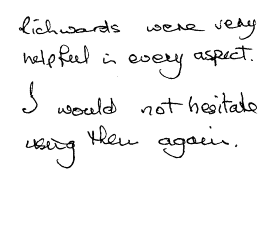 Richwards were very
helpful in every aspect.
I would not hesitate
using them again.